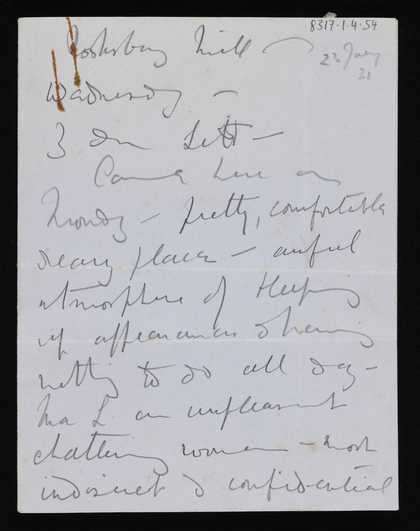 8317.1.4.54
Rooksbury Mill
23 July
21
Wednesday –
Dr Lett –
Came here on
Monday – pretty, comfortable
dreary place – awful
atmosphere of Keeping
up appearances & having
nothing to do all day –
Ma L. an unpleasant
chattering woman – most
indiscreet & confidential